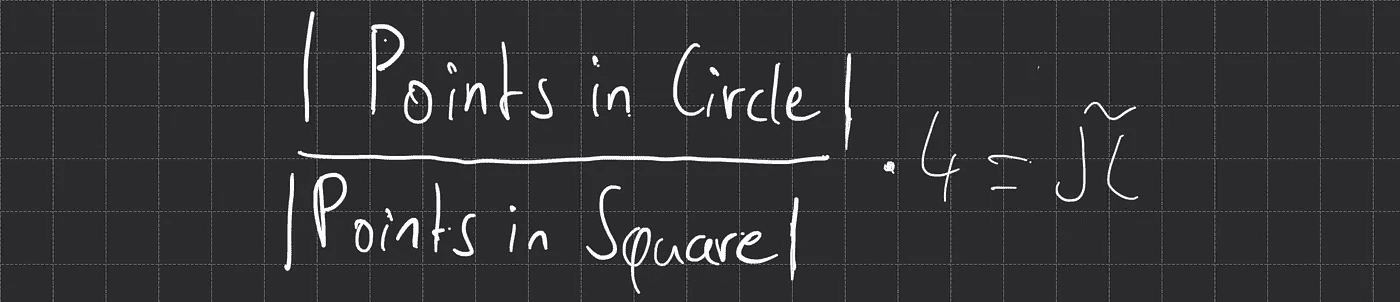 |Points in Circle|
|Points in Square|
· 4 = π̃